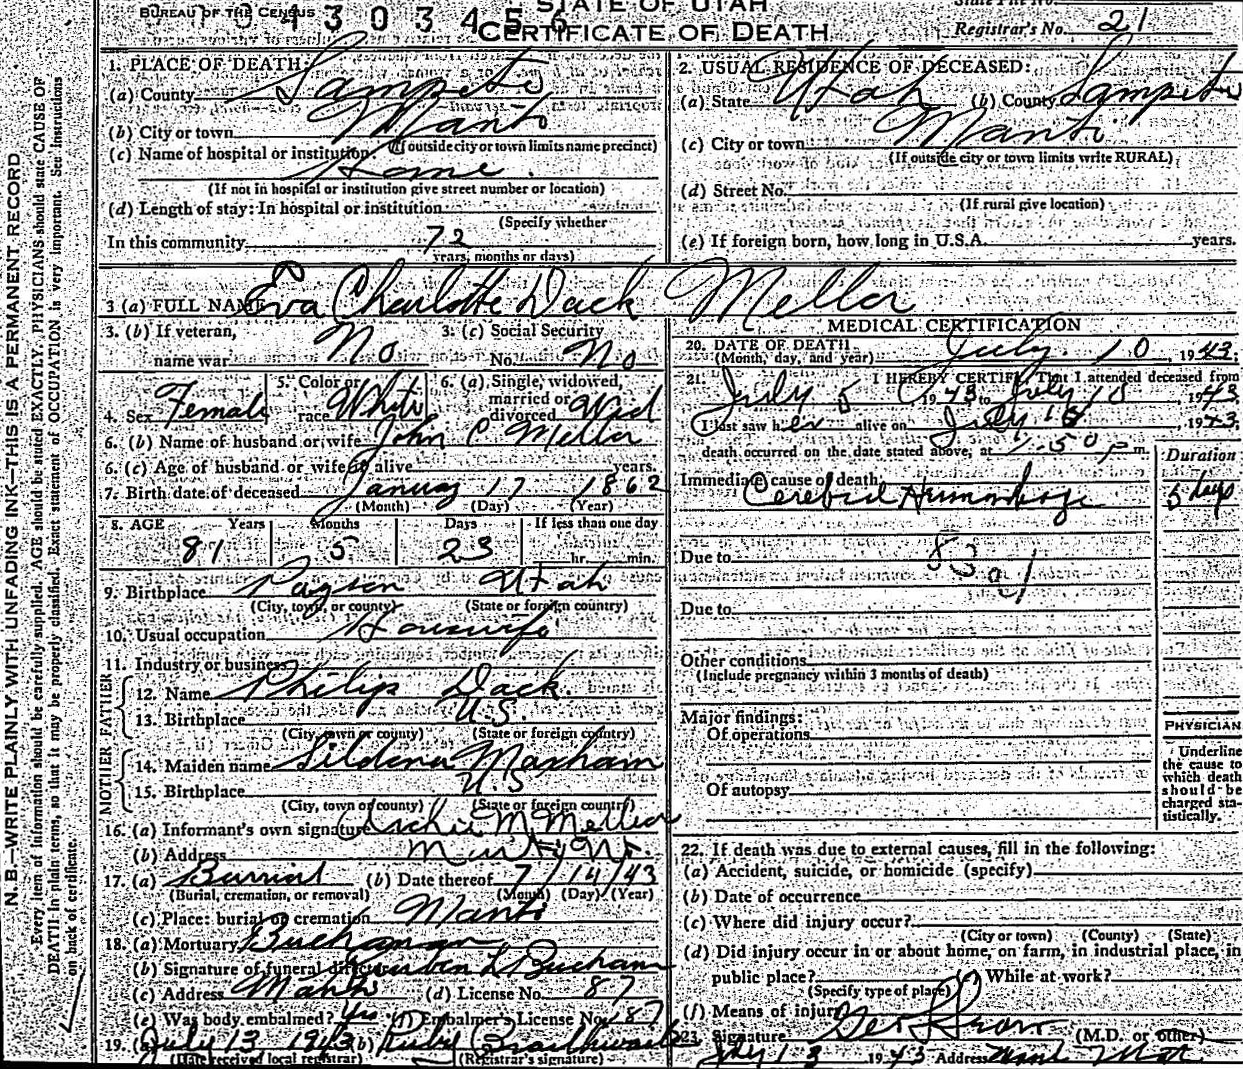 BUREAU OF THE CENSUS
STATE OF UTAH
CERTIFICATE OF DEATH
State File No.
Registrar's No. 21
N.B.—WRITE PLAINLY WITH UNFADING INK—THIS IS A PERMANENT RECORD
Every item of information should be carefully supplied. AGE should be stated EXACTLY. PHYSICIANS should state CAUSE OF
DEATH in plain terms, so that it may be properly classified. Exact statement of OCCUPATION is very important. See instructions
on back of certificate.
1. PLACE OF DEATH:
(a) County Sanpete
(b) City or town Manti
(If outside city or town limits name precinct)
(c) Name of hospital or institution:
Home.
(If not in hospital or institution give street number or location)
(d) Length of stay: In hospital or institution
(Specify whether
In this community 72
years, months or days)
2. USUAL RESIDENCE OF DECEASED:
(a) State Utah (b) County Sanpete
(c) City or town Manti
(If outside city or town limits write RURAL)
(d) Street No.
(If rural give location)
(e) If foreign born, how long in U.S.A. years.
3 (a) FULL NAME Eva Charlotte Dack Mellor
3. (b) If veteran, name war No
3. (c) Social Security No. No
4. Sex Female
5. Color or race White
6. (a) Single, widowed, married or divorced Wid
6. (b) Name of husband or wife John C Mellor
6. (c) Age of husband or wife if alive years.
7. Birth date of deceased January 17 1862
(Month) (Day) (Year)
8. AGE Years Months Days If less than one day
81 5 23 hr. min.
9. Birthplace Payson Utah
(City, town, or county) (State or foreign country)
10. Usual occupation Housewife
11. Industry or business
FATHER
12. Name Philip Dack.
13. Birthplace U.S.
(City, town or county) (State or foreign country)
MOTHER
14. Maiden name Sildena Maxham
15. Birthplace U.S
(City, town or county) (State or foreign country)
16. (a) Informant's own signature Archie M Mellor
(b) Address
17. (a) Burrial (b) Date thereof 7/14/43
(Burial, cremation, or removal) (Month) (Day) (Year)
(c) Place: burial or cremation Manti
18. (a) Mortuary Buchanan
(b) Signature of funeral director
(c) Address Manti (d) License No. 87
(e) Was body embalmed? Yes (f) Embalmer's License No. 87
19. (a) July 13 1943 (b) Ruby Braithwaite
(Date received local registrar) (Registrar's signature)
MEDICAL CERTIFICATION
20. DATE OF DEATH
(Month, day, and year) July 10, 1943;
21. I HEREBY CERTIFY, That I attended deceased from
July 5 1943 to July 10, 1943;
I last saw her alive on July 10, 1943;
death occurred on the date stated above, at 1:50 p m.
Duration
Immediate cause of death:
Cerebral Hemmorhage 5 days
Due to
83a1
Due to
Other conditions
(Include pregnancy within 3 months of death)
Major findings:
Of operations
Of autopsy
PHYSICIAN
Underline
the cause to
which death
should be
charged sta-
tistically.
22. If death was due to external causes, fill in the following:
(a) Accident, suicide, or homicide (specify)
(b) Date of occurrence
(c) Where did injury occur?
(City or town) (County) (State)
(d) Did injury occur in or about home, on farm, in industrial place, in
public place? (e) While at work?
(Specify type of place)
(f) Means of injury
23. Signature (M.D. or other)
July 13 1943 Address